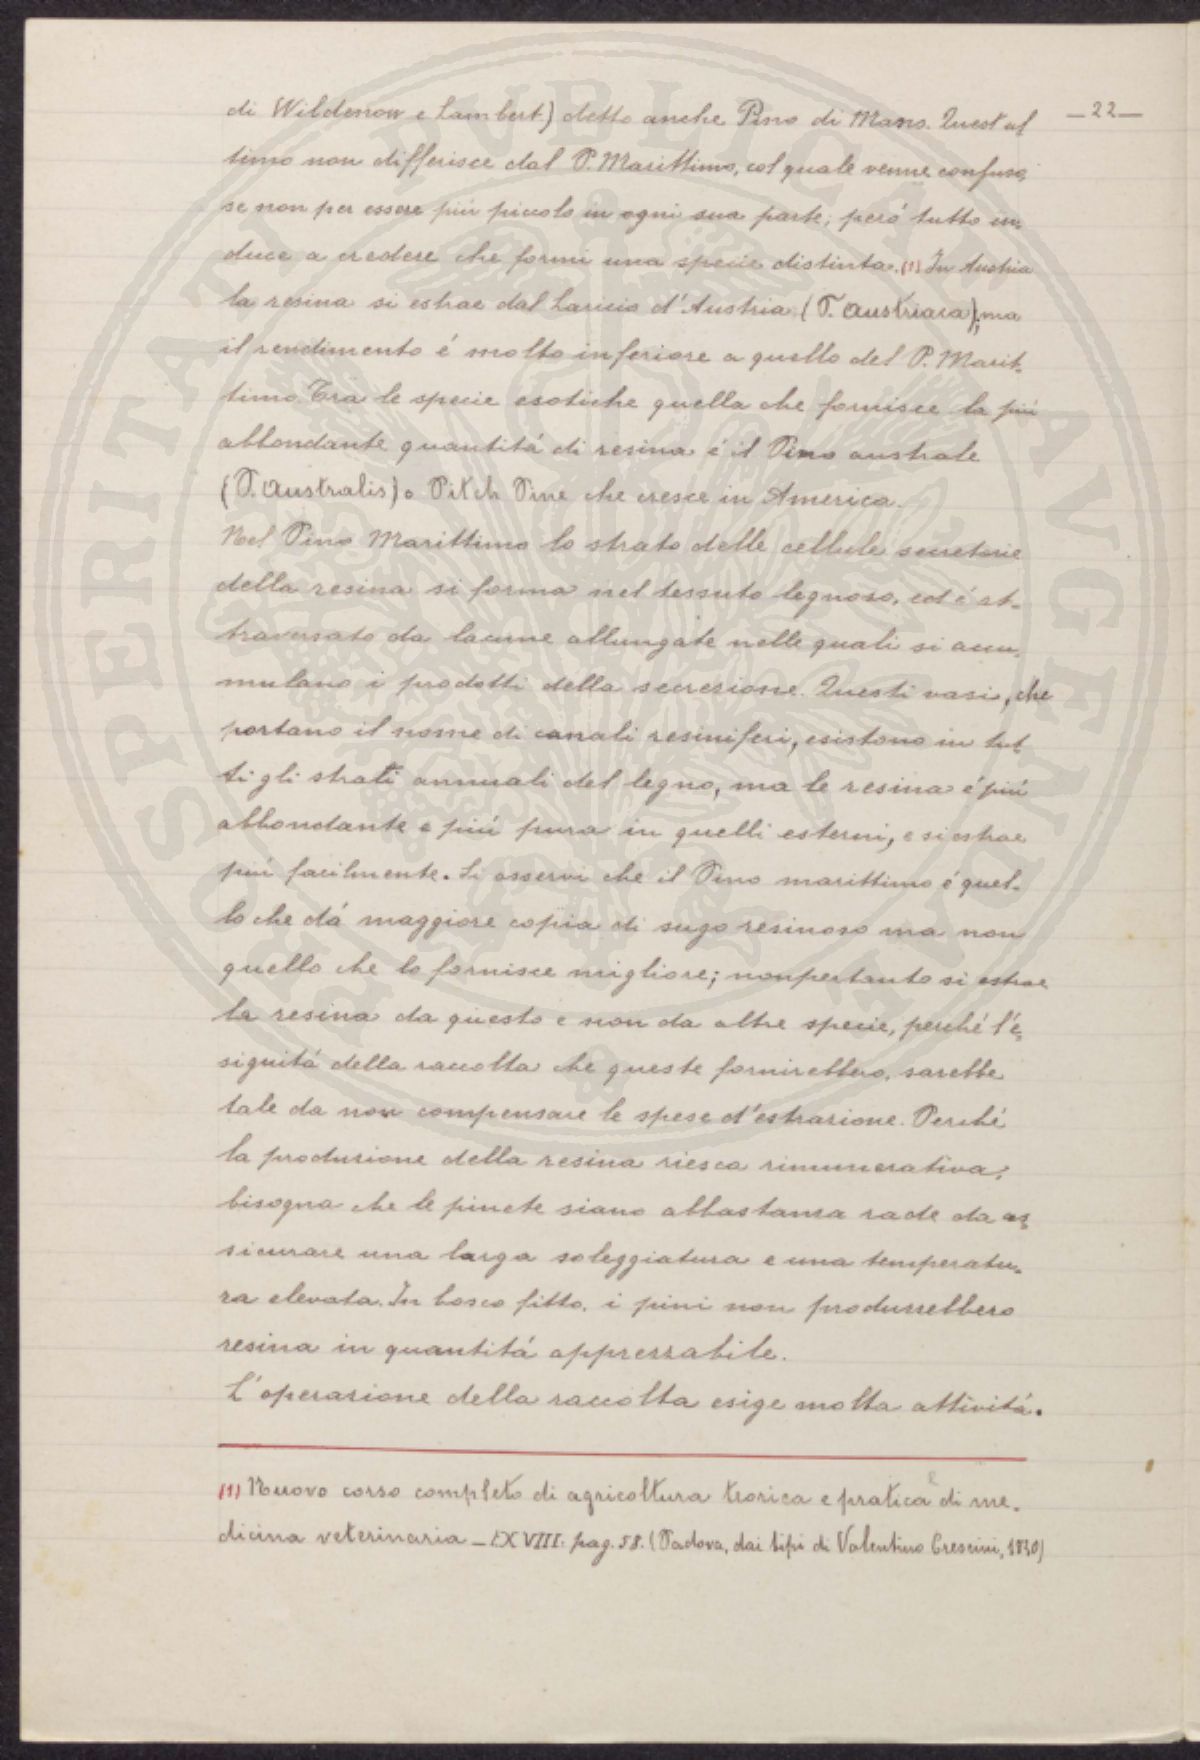 —22—
di Wildenow e Lambert) detto anche Pino di Mans. Quest'ul
timo non differisce dal P. Marittimo, col quale venne confuso,
se non per essere piú piccolo in ogni sua parte; peró tutto in-
duce a credere che formi una specie distinta. (1) In Austria
la resina si estrae dal Laricio d'Austria (P. Austriaca); ma
il rendimento é molto inferiore a quello del P. Marit-
timo. Tra le specie esotiche quella che fornisce la piú
abbondante quantitá di resina é il Pino australe
(P. Australis) o Pitch Pine che cresce in America.
Nel Pino Marittimo lo strato delle cellule secretorie
della resina si forma nel tessuto legnoso, ed é at-
traversato da lacune allungate nelle quali si accu-
mulano i prodotti della secrezione. Questi vasi, che
portano il nome di canali resiniferi, esistono in tut-
ti gli strati annuali del legno, ma le resina é piú
abbondante e piú pura in quelli esterni, e si estrae
piú facilmente. Si osservi che il Pino marittimo é quel-
lo che dá maggiore copia di sugo resinoso ma non
quello che lo fornisce migliore; nonpertanto si estrae
la resina da questo e non da altre specie, perché l'e-
siguitá della raccolta che queste fornirebbero, sarebbe
tale da non compensare le spese d'estrazione. Perché
la produzione della resina riesca rimunerativa,
bisogna che le pinete siano abbastanza rade da as-
sicurare una larga soleggiatura e una temperatu-
ra elevata. In bosco fitto, i pini non produrrebbero
resina in quantitá apprezzabile.
L'operazione della raccolta esige molta attivitá.
(1) Nuovo corso completo di agricoltura teorica e pratica e di me-
dicina veterinaria – XVIII. pag. 58. (Padova, dai tipi di Valentino Crescini, 1830)
SPERITATI PVBLICAE AVGENDAE